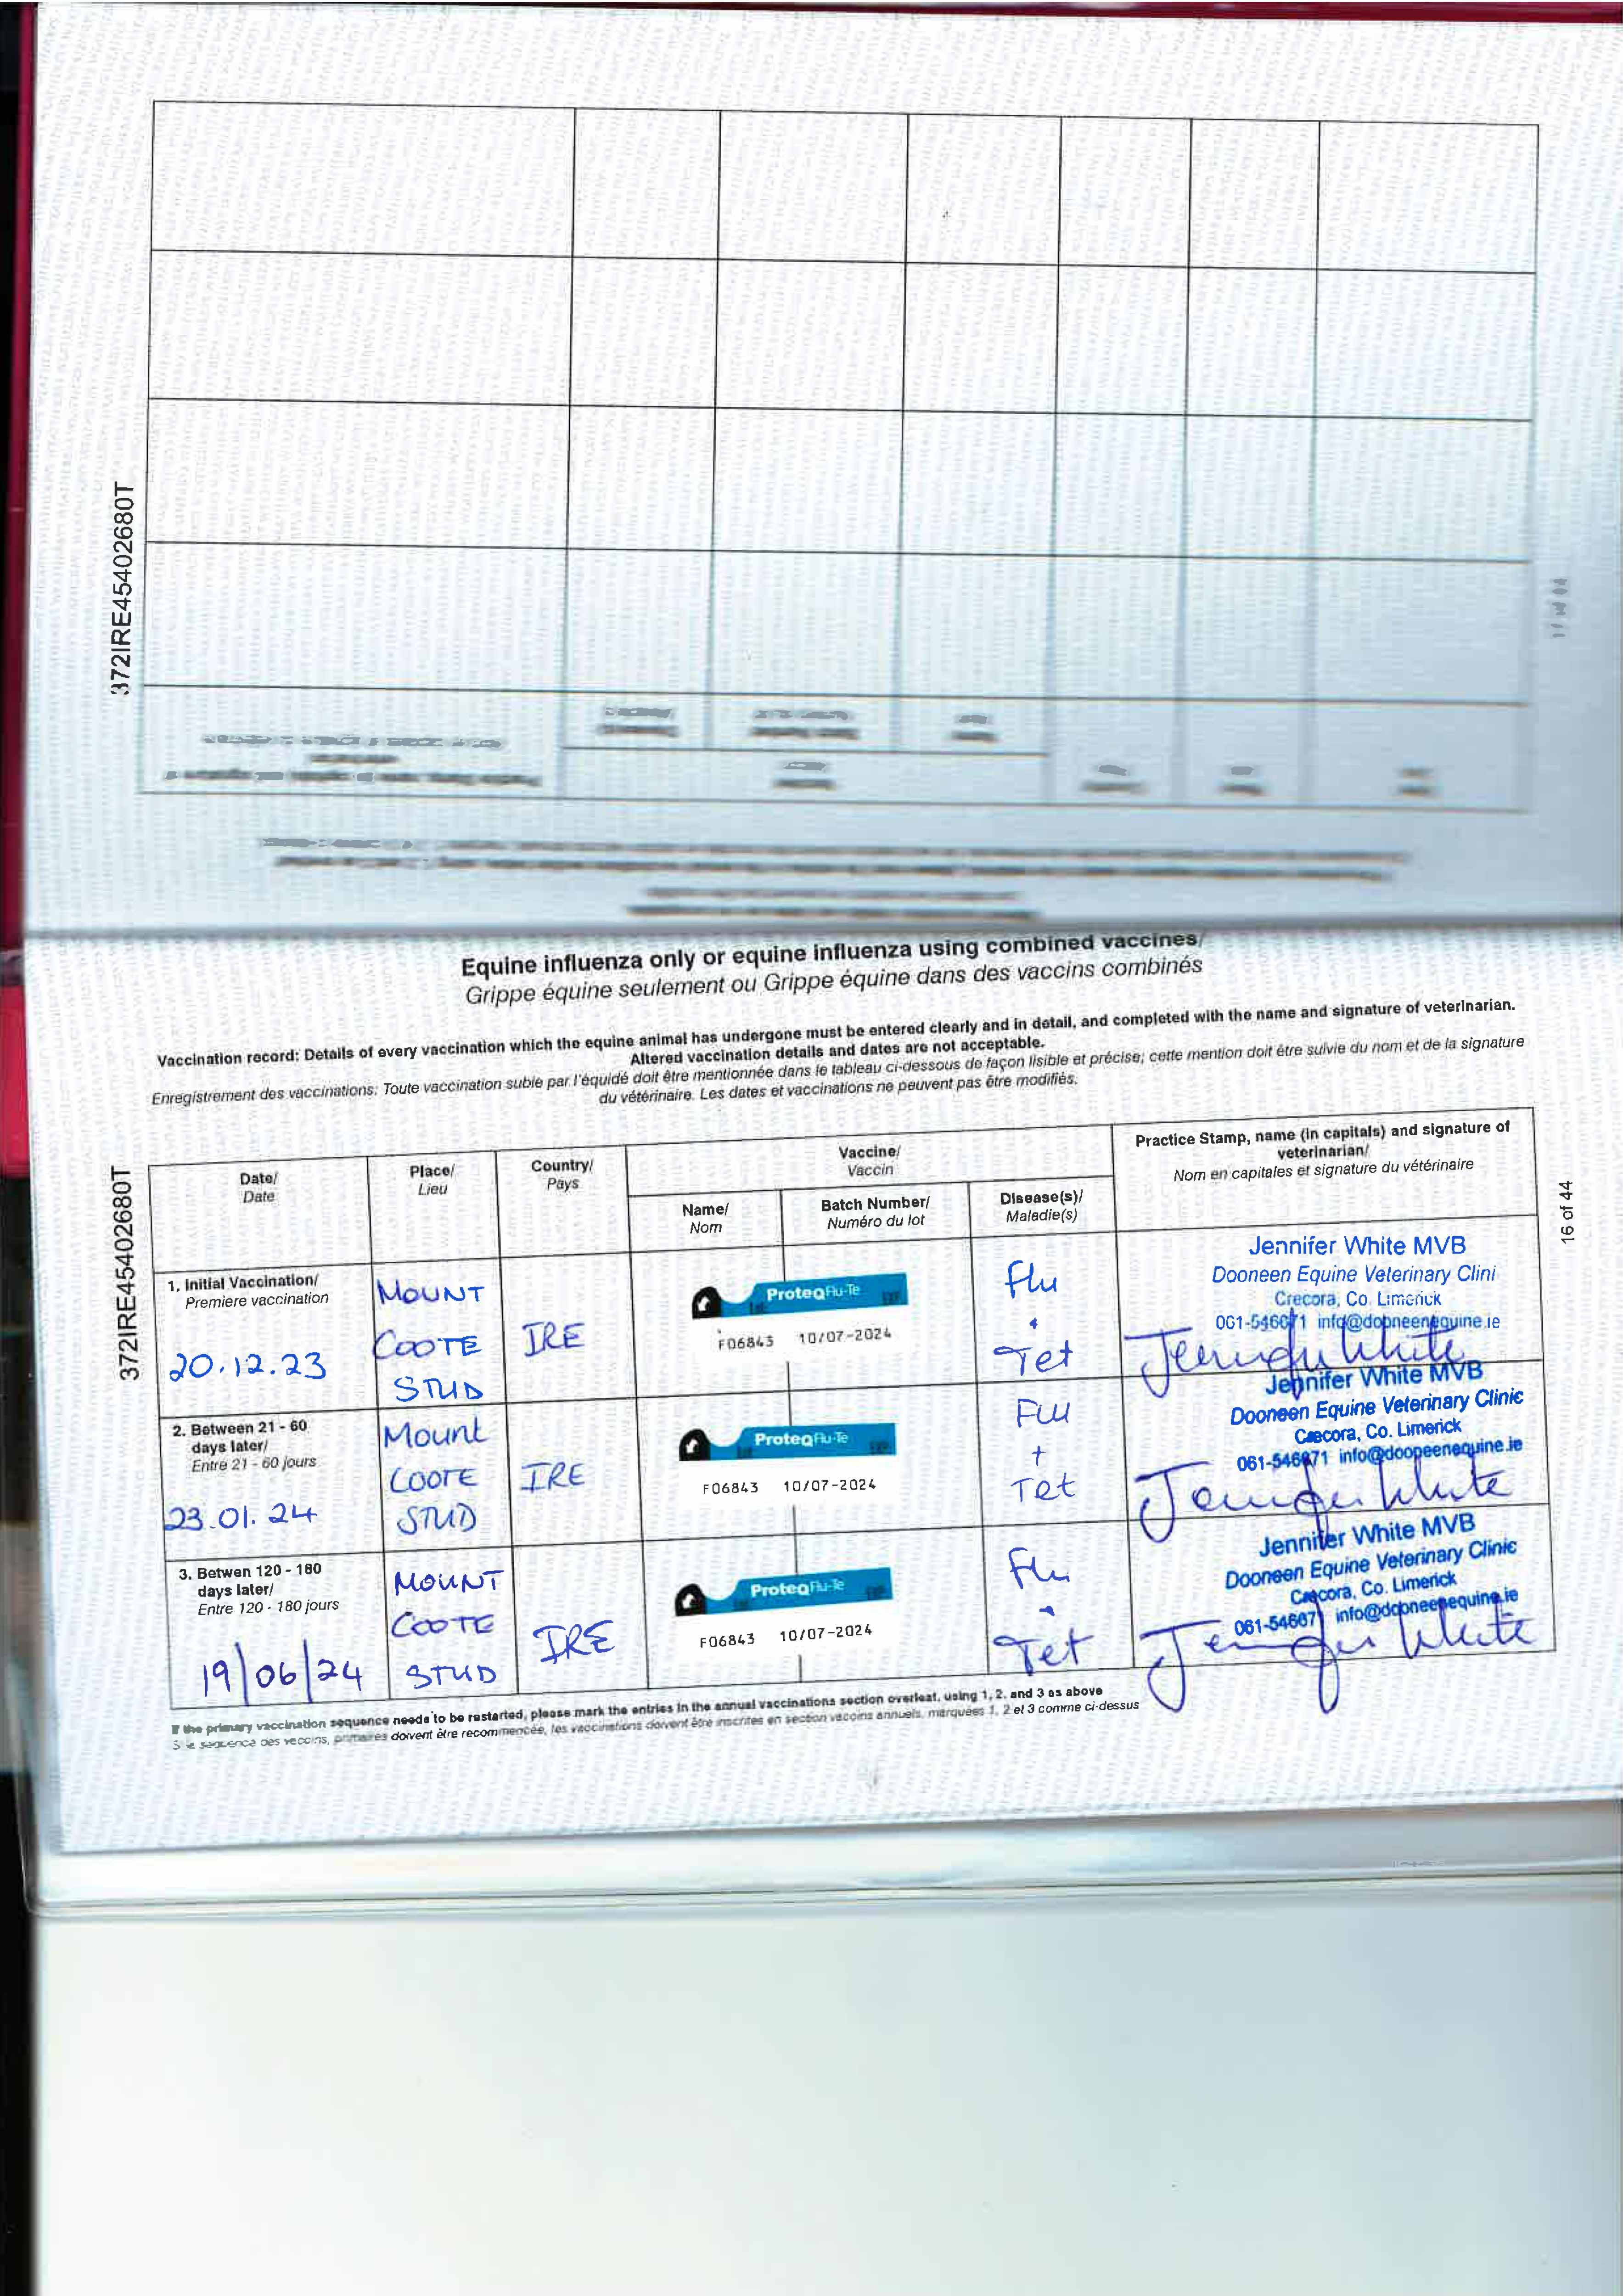 372IRE45402680T
Equine influenza only or equine influenza using combined vaccines/
Grippe équine seulement ou Grippe équine dans des vaccins combinés
Vaccination record: Details of every vaccination which the equine animal has undergone must be entered clearly and in detail, and completed with the name and signature of veterinarian.
Altered vaccination details and dates are not acceptable.
Enregistrement des vaccinations: Toute vaccination subie par l'équidé doit être mentionnée dans le tableau ci-dessous de façon lisible et précise; cette mention doit être suivie du nom et de la signature
du vétérinaire. Les dates et vaccinations ne peuvent pas être modifiés.
372IRE45402680T
16 of 44
Date/
Date
Place/
Lieu
Country/
Pays
Vaccine/
Vaccin
Name/
Nom
Batch Number/
Numéro du lot
Disease(s)/
Maladie(s)
Practice Stamp, name (in capitals) and signature of
veterinarian/
Nom en capitales et signature du vétérinaire
1. Initial Vaccination/
Premiere vaccination
20.12.23
MOUNT
COOTE
STUD
IRE
ProteqFlu-Te
F06843 10/07-2024
Flu
+
Tet
Jennifer White MVB
Dooneen Equine Veterinary Clini
Crecora, Co. Limerick
061-546071 info@dooneenequine.ie
Jennifer White
2. Between 21 - 60
days later/
Entre 21 - 60 jours
23.01.24
Mount
COOTE
STUD
IRE
ProteqFlu-Te
F06843 10/07-2024
Flu
+
Tet
Jennifer White MVB
Dooneen Equine Veterinary Clinic
Crecora, Co. Limerick
info@dooneenequine.ie
Jennifer White
3. Betwen 120 - 180
days later/
Entre 120 - 180 jours
19/06/24
MOUNT
COOTE
STUD
IRE
ProteqFlu-Te
F06843 10/07-2024
Flu
+
Tet
Jennifer White MVB
Dooneen Equine Veterinary Clinic
Crecora, Co. Limerick
info@dooneenequine.ie
Jennifer White
If the primary vaccination sequence needs to be restarted, please mark the entries in the annual vaccinations section overleaf, using 1, 2, and 3 as above
Si le sequence des veccins, primaires doivent être recommencée, les vaccinations doivent être inscrites en section vaccins annuels, marquées 1, 2 et 3 comme ci-dessus